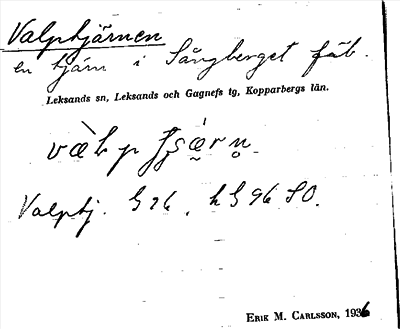 Valptjärnen
en tjärn i Sångberget fäb.
Leksands sn, Leksands och Gagnefs tg, Kopparbergs län.
Valptj. G 96, h G 96 S O.
ERIK M. CARLSSON, 1936